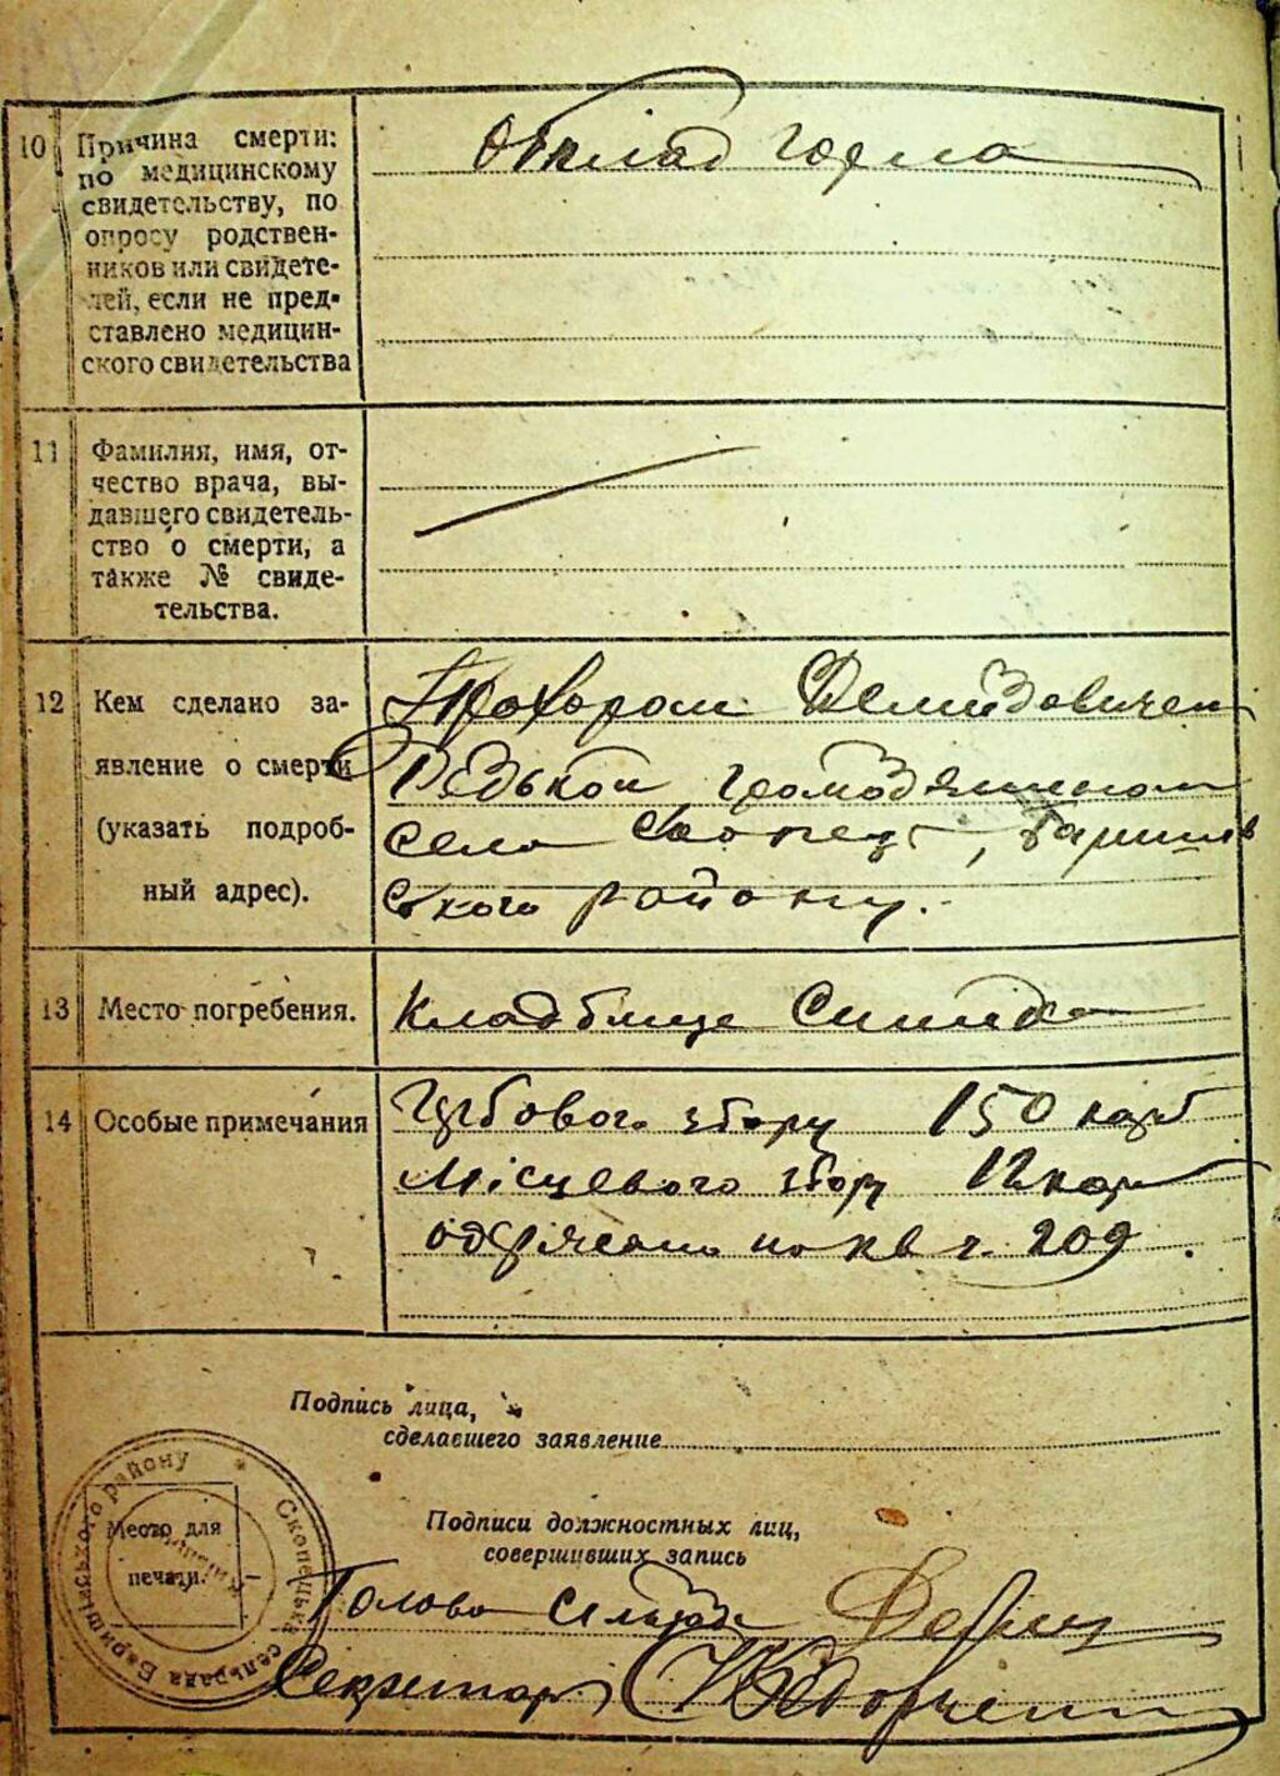 10 Причина смерти:
по медицинскому
свидетельству, по
опросу родствен-
ников или свидете-
лей, если не пред-
ставлено медицин-
ского свидетельства
Обклад горла
11 Фамилия, имя, от-
чество врача, вы-
давшего свидетель-
ство о смерти, а
также № свиде-
тельства.
12 Кем сделано за-
явление о смерти
(указать подроб-
ный адрес).
Прохором Демидовичем
Редькой громодянином
село Скопец, Баришів
ського району.
13 Место погребения.
Кладбище
14 Особые примечания
збору 150 карб
Місцевого збору 12 кар
одержано по кв ч. 209.
Подпись лица,
сделавшего заявление
Место для
печати.
Скопецька сельрада Баришівського району
Подписи должностных лиц,
совершивших запись
Голова сільради
Секретар Федорченко